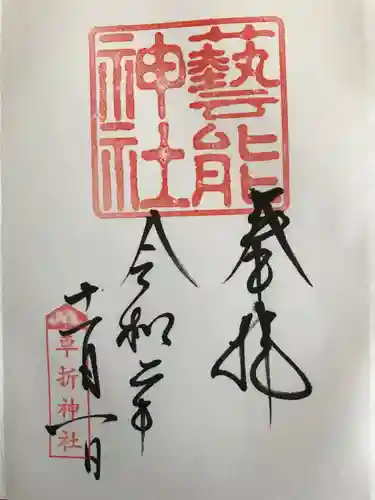 藝能
神社
奉拝
令和二年
十一月一日
車折神社